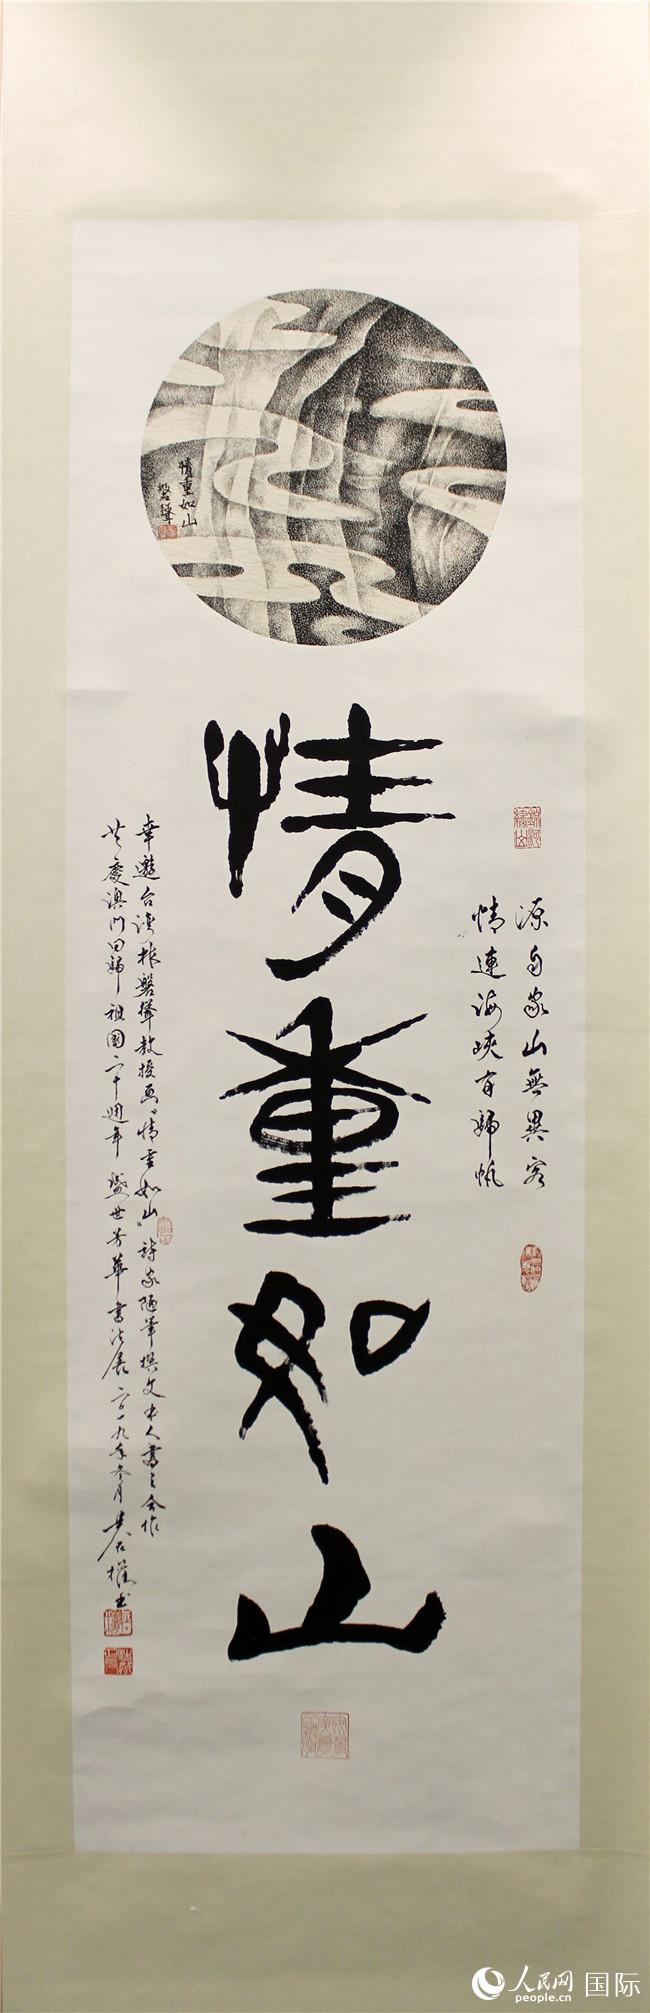 情重如山
磐聳
情重如山
源自家山無異客
情連海峽有歸帆
幸邀台灣林磐聳教授画“情重如山”詩家隨筆撰文本人書之合作
共慶澳門回歸祖國二十週年盛世芳華書法展二〇一九年參月
人民网 国际
people.cn